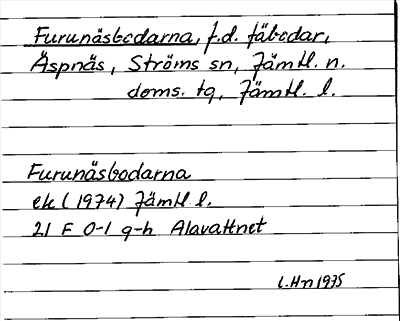 Furunäsbodarna, f.d. fäbodar,
Äspnäs, Ströms sn, Jämtl. n.
doms. tg, Jämtl. l.
Furunäsbodarna
ek (1974) Jämtl l.
21 F 0-1 g-h Alavattnet
L.Hn 1975